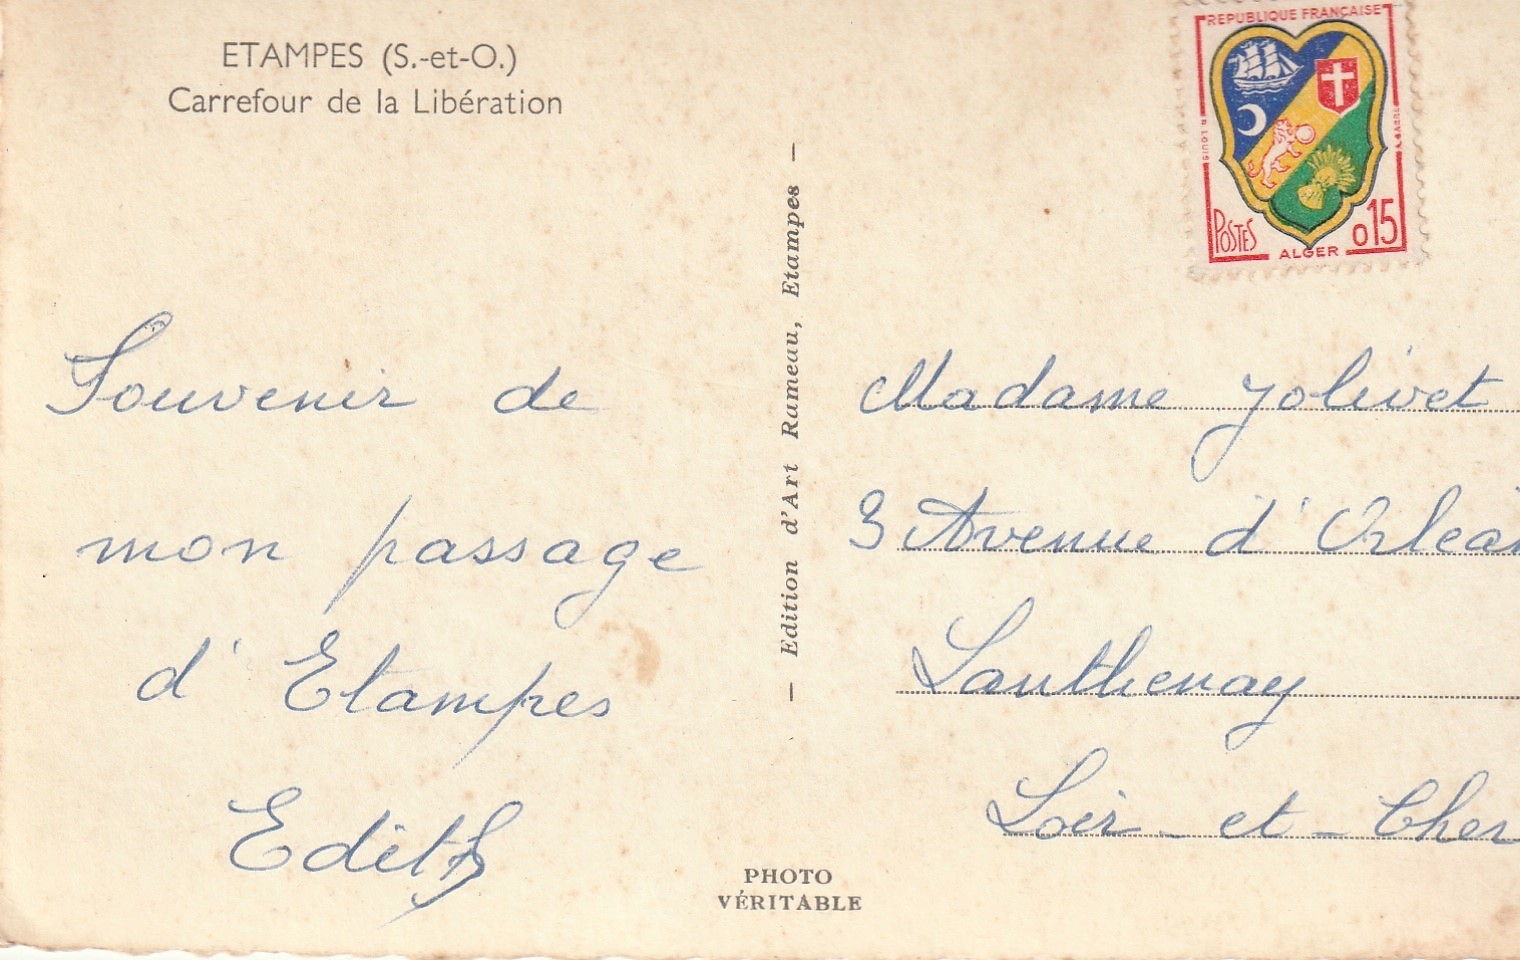 ETAMPES (S.-et-O.)
Carrefour de la Libération
REPUBLIQUE FRANÇAISE
R. LOUIS
POSTES
ALGER
0,15
Souvenir de
mon passage
d'Etampes
Edith
— Edition d'Art Rameau, Etampes —
PHOTO
VÉRITABLE
Madame Jolivet
3 Avenue d'Orléan
Lanthenay
Loir-et-Cher